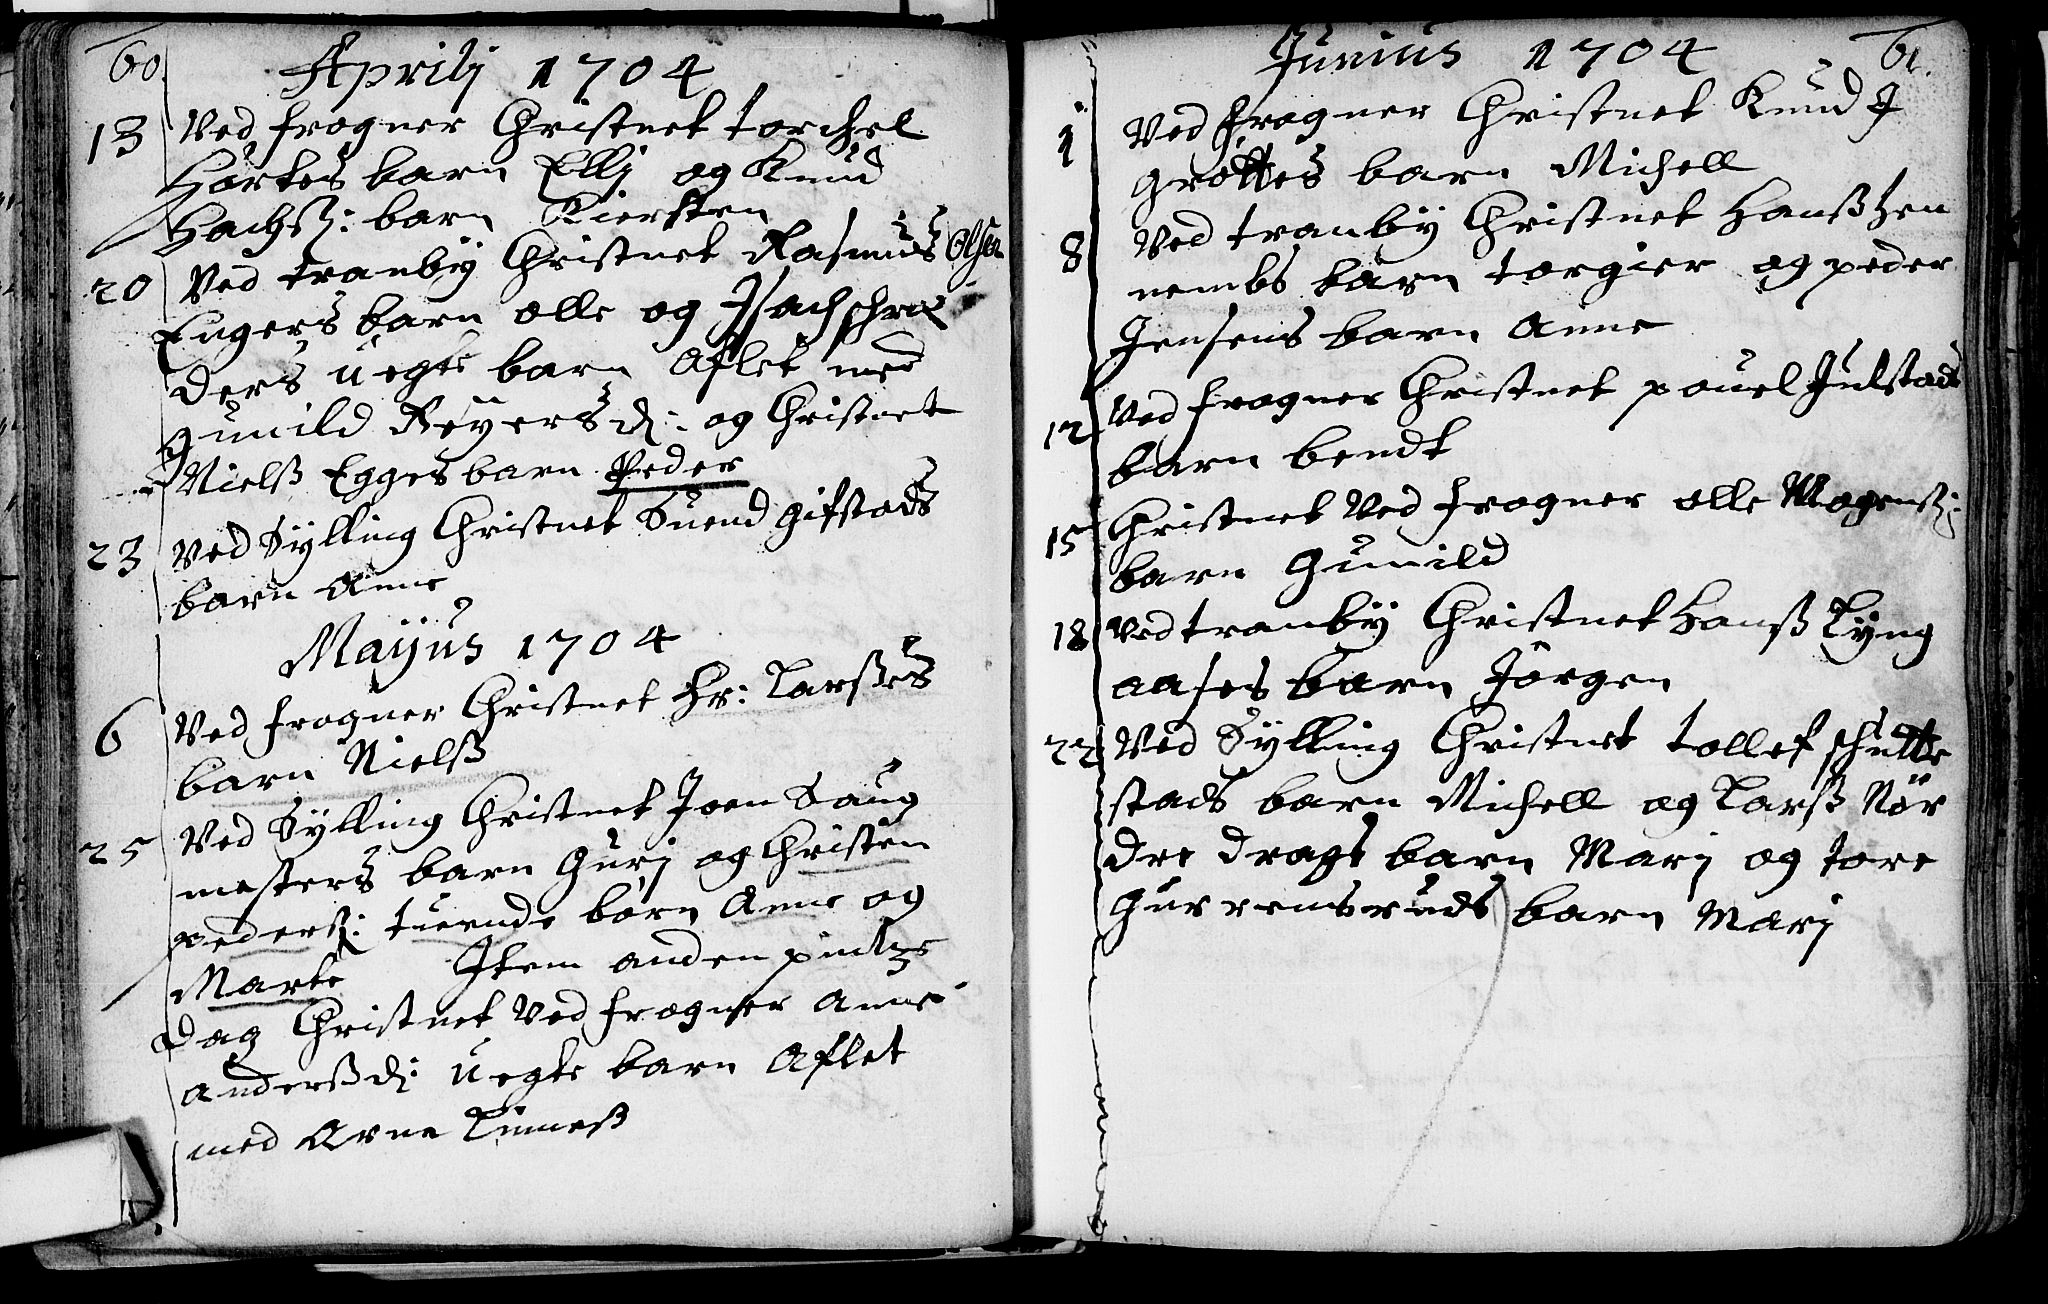 60
Aprilj 1704
13 Ved frogner Christnet torchel
Hørtes barn Ellj og Knud
Hachß: barn Kiersten
20 Ved tranby Christnet Rasmus Olsen
Engers barn olle og Isach schrø
ders uegte barn Aflet med
gunild Reyersd: og Christnet
Nielß Egges barn Peder
23 Ved Sylling Christnet Suend gifstads
barn Anne
Mayus 1704
6 Ved frogner Christnet Hr: Larßes
barn Nielß
25 Ved Sylling Christnet Joen Saug
mesters barn Gurj og Christen
pederß: tuende børn Anne og
Marte Item anden pintze
dag Christnet Ved frogner anne
anderßd: uegte barn Aflet
med Arne Linneß
61.
Junius 1704
1 Ved frogner Christnet Knud I
grøttes barn Michell
8 Ved tranby Christnet Hanß hen
nembs barn torgier og peder
Jensens barn Anne
12 Ved frogner Christnet pouel Julstads
barn bendt
15 Christnet Ved frogner olle Mogenß:
barn Gunild
18 Ved tranby Christnet Hanß Lyng
aases barn Jørgen
22 Ved Sylling Christnet tollef schutte
stads barn Michell og Larß Nør
dre dragt barn Marj og tore
Gurrensruds barn Marj